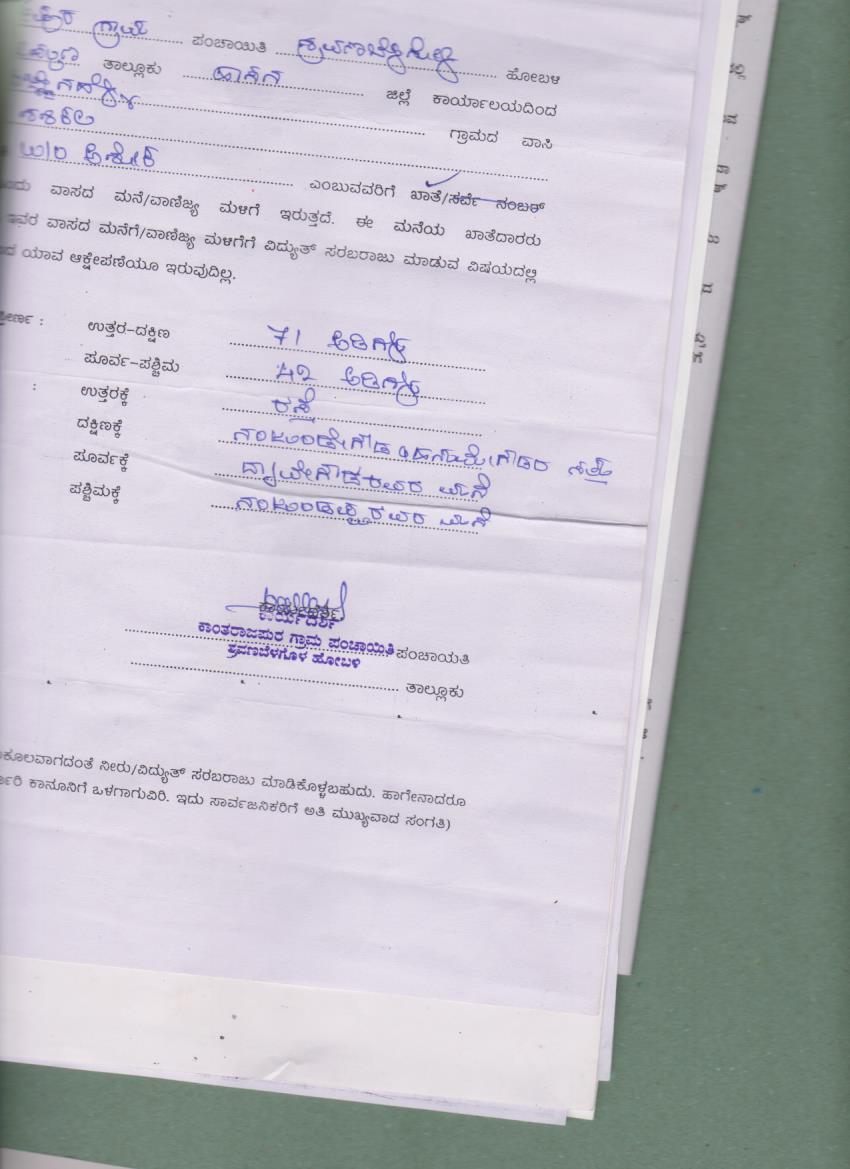 ಗ್ರಾಮ ಪಂಚಾಯಿತಿ ಶ್ರವಣಬೆಳಗೊಳ ಹೋಬಳಿ
ತಾಲ್ಲೂಕು ಹಾಸನ ಜಿಲ್ಲೆ ಕಾರ್ಯಾಲಯದಿಂದ
ಗ್ರಾಮದ ವಾಸಿ
ಶಶಿಕಲ
W/o ಅಶೋಕ್ ಎಂಬುವವರಿಗೆ ಖಾತೆ/ಸರ್ವೆ ನಂಬರ್
ವಾಸದ ಮನೆ/ವಾಣಿಜ್ಯ ಮಳಿಗೆ ಇರುತ್ತದೆ. ಈ ಮನೆಯ ಖಾತೆದಾರರು
ಇವರ ವಾಸದ ಮನೆಗೆ/ವಾಣಿಜ್ಯ ಮಳಿಗೆಗೆ ವಿದ್ಯುತ್ ಸರಬರಾಜು ಮಾಡುವ ವಿಷಯದಲ್ಲಿ
ಯಾವ ಆಕ್ಷೇಪಣೆಯೂ ಇರುವುದಿಲ್ಲ.
ಉತ್ತರ-ದಕ್ಷಿಣ 71 ಅಡಿಗಳು
ಪೂರ್ವ-ಪಶ್ಚಿಮ ೫೨ ಅಡಿಗಳು
: ಉತ್ತರಕ್ಕೆ ರಸ್ತೆ
ದಕ್ಷಿಣಕ್ಕೆ ನಂಜುಂಡೇಗೌಡ
ಪೂರ್ವಕ್ಕೆ ದ್ಯಾವೇಗೌಡರವರ ಮನೆ
ಪಶ್ಚಿಮಕ್ಕೆ ನಂಜುಂಡಪ್ಪರವರ ಮನೆ
ಕಾರ್ಯದರ್ಶಿ
ಕಾಂತರಾಜಪುರ ಗ್ರಾಮ ಪಂಚಾಯಿತಿ ಪಂಚಾಯತಿ
ಶ್ರವಣಬೆಳಗೊಳ ಹೋಬಳಿ
ತಾಲ್ಲೂಕು
ನೀರು/ವಿದ್ಯುತ್ ಸರಬರಾಜು ಮಾಡಿಕೊಳ್ಳಬಹುದು. ಹಾಗೇನಾದರೂ
ಕಾನೂನಿಗೆ ಒಳಗಾಗುವಿರಿ. ಇದು ಸಾರ್ವಜನಿಕರಿಗೆ ಅತಿ ಮುಖ್ಯವಾದ ಸಂಗತಿ)